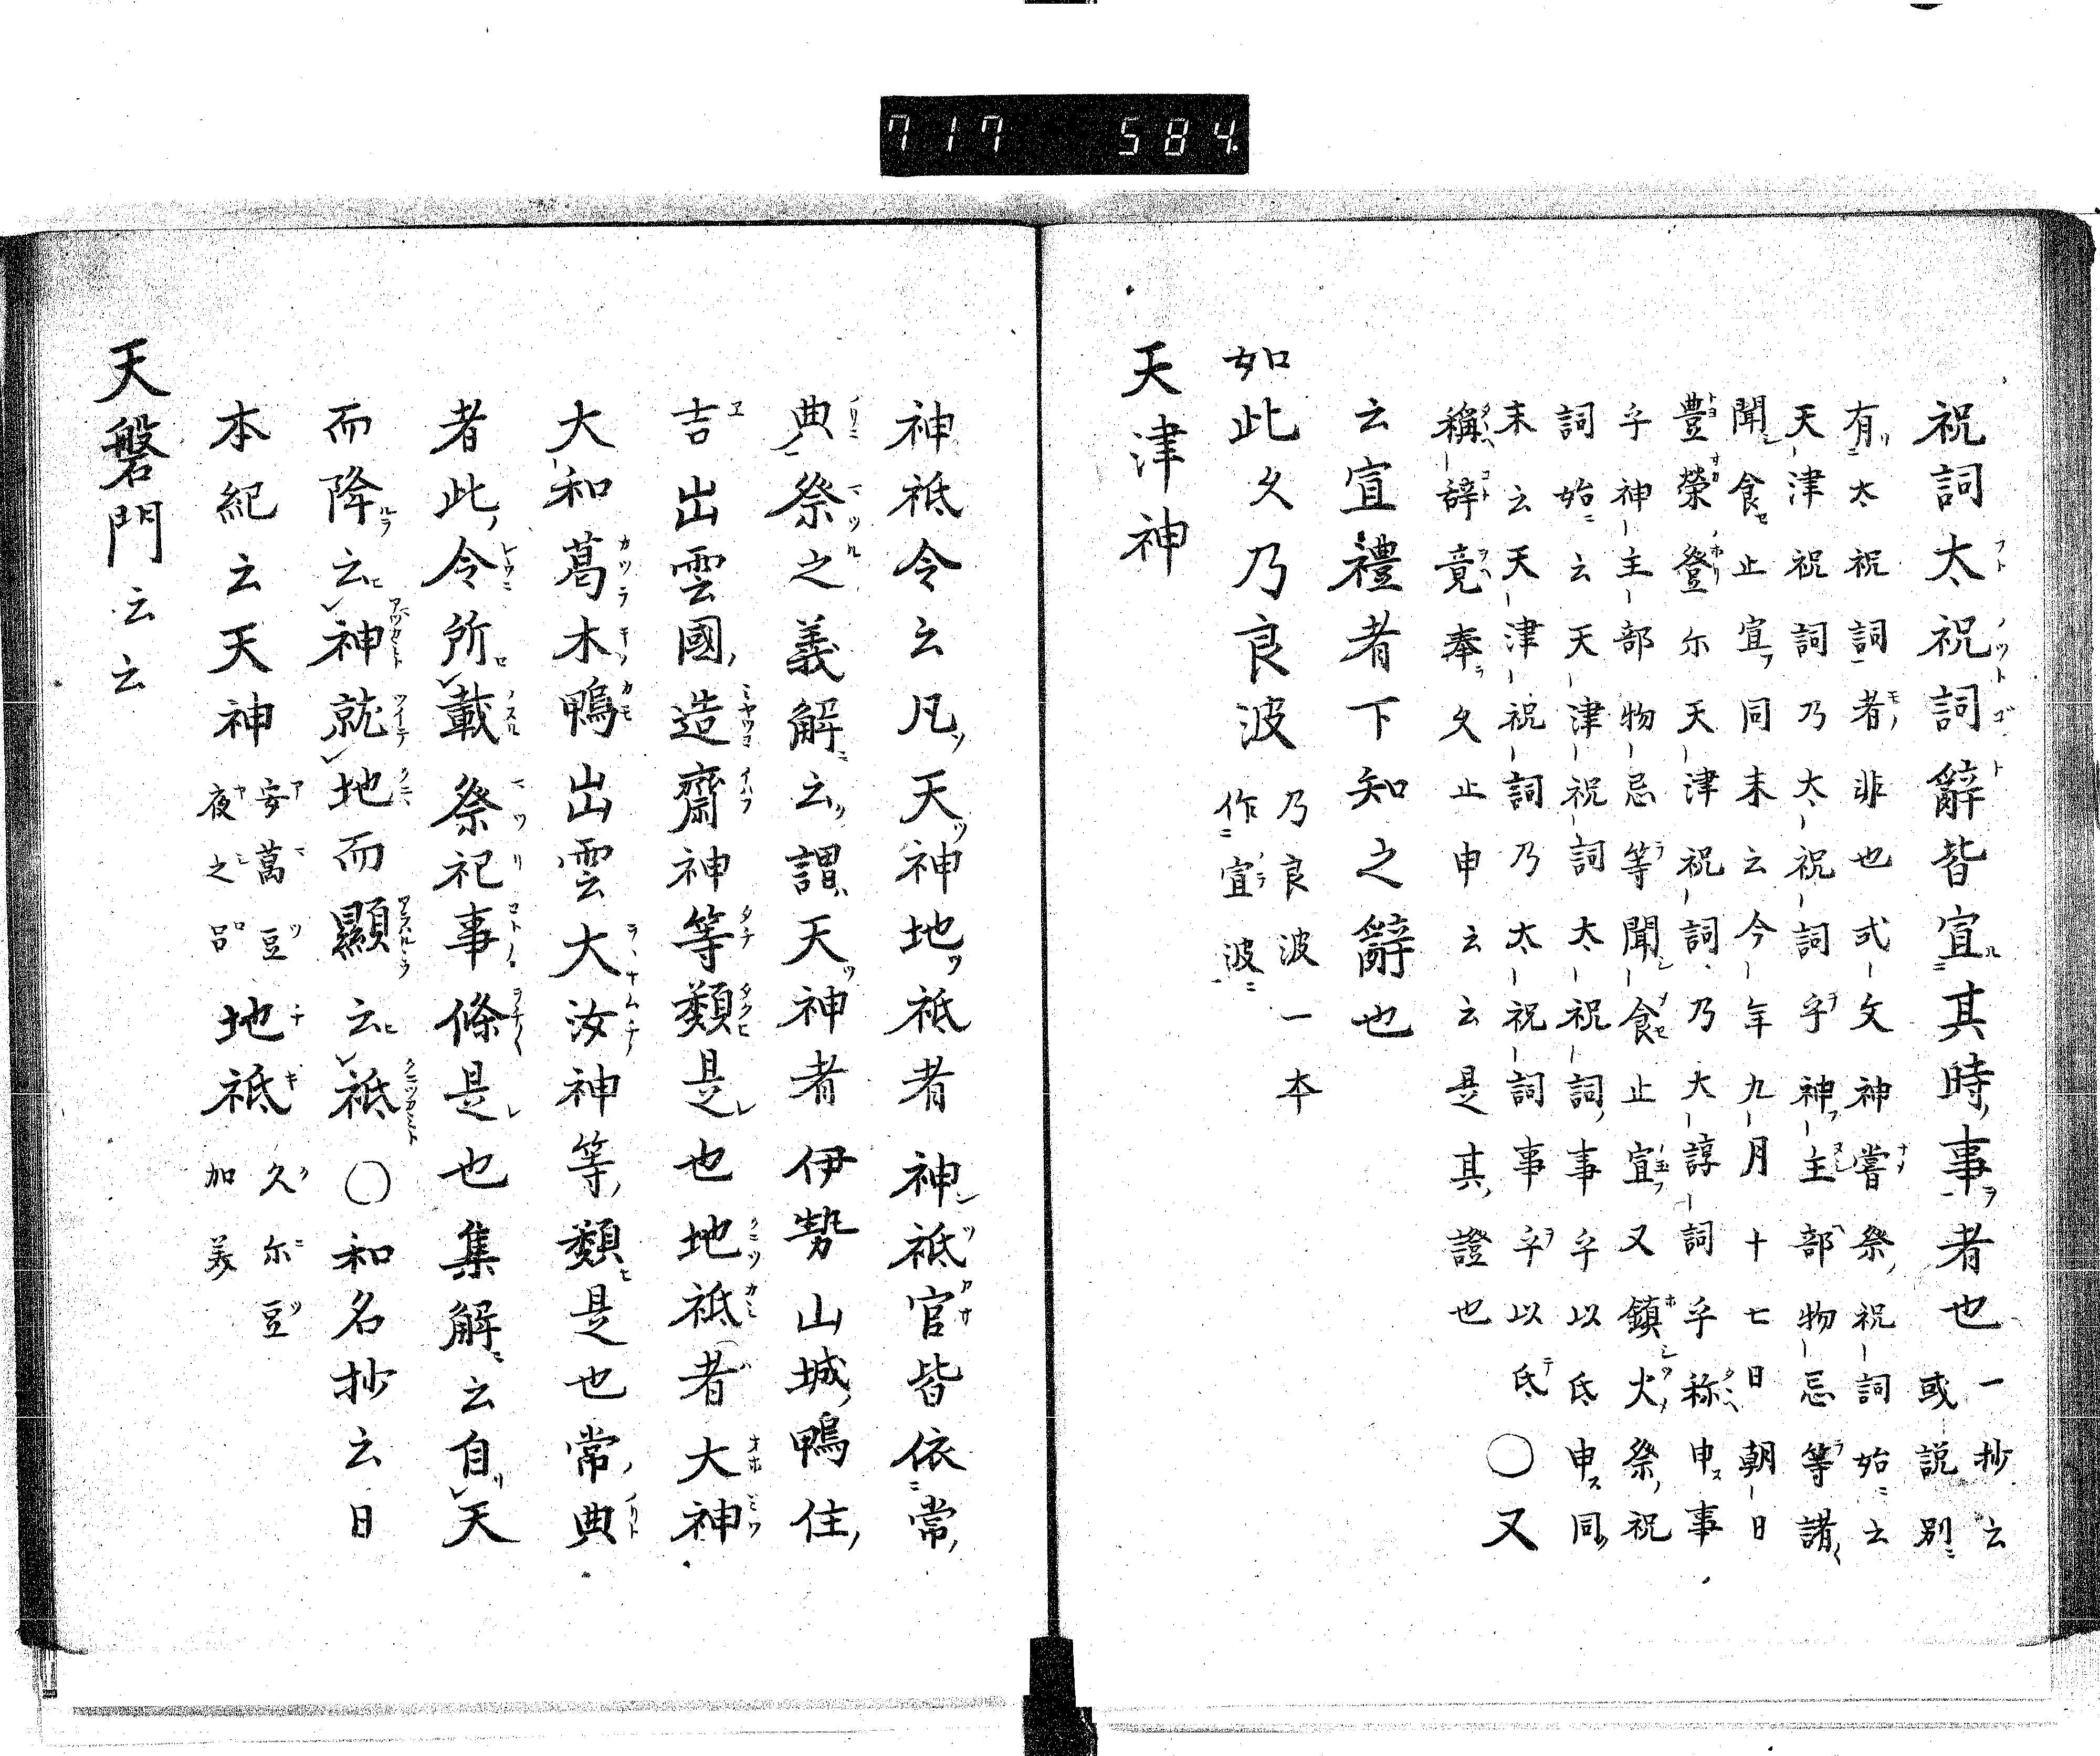 717 584
祝詞太祝詞辭皆宣其時事者也 一抄云
或説別
有太祝詞者非也式文神嘗祭祝詞始云
天津祝詞乃太祝詞乎神主部物忌等諸
聞食止宣同末云今年九月十七日朝日
豊榮登尓天津祝詞乃太諄詞乎称申事
乎神主部物忌等聞食止宣又鎮火祭祝
詞始云天津祝詞太祝詞事乎以氐申同
末云天津祝詞乃太祝詞事乎以氐〇又
稱辞竟奉久止申云云是其證也
云宣禮者下知之辭也
如此久乃良波 乃良波一本
作宣波
天津神
神祇令云凡天神地祇者神祇官皆依常
典祭之義解云謂天神者伊勢山城鴨住
吉出雲國造齋神等類是也地祇者大神
大和葛木鴨出雲大汝神等類是也常典
者此令所載祭祀事條是也集解云自天
而降云神就地而顯云祇〇和名抄云日
本紀云天神 安萬豆
夜之呂 地祇 久尓豆
加美
天磐門云云